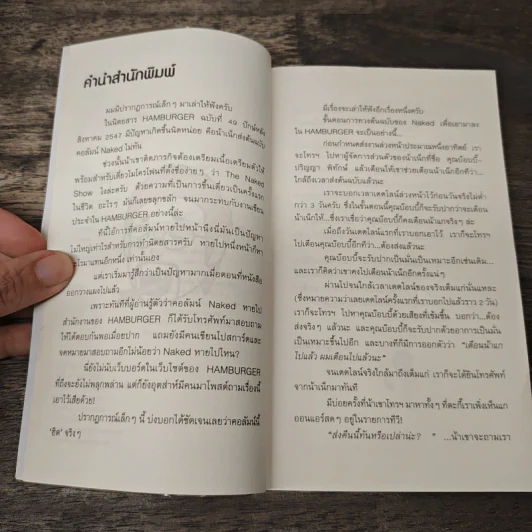 คำนำสำนักพิมพ์
ผมมีปรากฏการณ์เล็กๆ มาเล่าให้ฟังครับ
ในนิตยสาร HAMBURGER ฉบับที่ 49 ปักษ์หลัง
สิงหาคม 2547 มีปัญหาเกิดขึ้นนิดหน่อย คือน้าเน็กส่งต้นฉบับ
คอลัมน์ Naked ไม่ทัน
ช่วงนั้นน้าเขาติดภารกิจต้องเตรียมเนื้อเตรียมตัวให้
พร้อมสำหรับเดี่ยวไมโครโฟนที่ตั้งชื่อง่ายๆ ว่า The Naked
Show ไงล่ะครับ ด้วยความที่เป็นการขึ้นเดี่ยวเป็นครั้งแรก
ในชีวิต อะไรๆ มันก็เลยขลุกขลัก จนมากระทบกับงานเขียน
ประจำใน HAMBURGER อย่างนี้ล่ะ
ที่นี้ไอ้การที่คอลัมน์หายไปหน้านึงนี่มันเป็นปัญหา
ไม่ใหญ่เท่าไรสำหรับการทำนิตยสารครับ หายไปหนึ่งหน้าก็หา
อะไรมาแทนอีกหนึ่ง เท่านั้นเอง
แต่เราเริ่มมารู้สึกว่าเป็นปัญหามากเมื่อตอนที่หนังสือ
ออกวางแผงไปแล้ว
เพราะทันทีที่ผู้อ่านรู้ตัวว่าคอลัมน์ Naked หายไป
สำนักงานของ HAMBURGER ก็ได้รับโทรศัพท์มาสอบถาม
ให้ได้ตอบกันพอเมื่อยปาก แถมยังมีคนเขียนโปสการ์ดและ
จดหมายมาสอบถามอีกไม่น้อยว่า Naked หายไปไหน?
นี่ยังไม่นับเว็บบอร์ดในเว็บไซต์ของ HAMBURGER
ที่ถึงจะยังไม่พลุกพล่าน แต่ก็ยังอุตส่าห์มีคนมาโพสต์ถามเรื่องนี้
เอาไว้เสียด้วย!
ปรากฏการณ์เล็กๆ นี้ บ่งบอกได้ชัดเจนเลยว่าคอลัมน์นี้
"ฮิต" จริงๆ
มีเรื่องจะเล่าให้ฟังอีกเรื่องหนึ่งครับ
ขั้นตอนการทวงต้นฉบับของ Naked เพื่อเอามาลง
ใน HAMBURGER จะเป็นอย่างนี้...
ก่อนกำหนดส่งงานล่วงหน้าประมาณหนึ่งอาทิตย์ เรา
จะโทรฯ ไปหาผู้จัดการส่วนตัวของน้าเน็กที่ชื่อ คุณบ๊อบบี้-
ปริญญา พิทักษ์ แล้วเตือนให้เขาช่วยเตือนน้าเน็กอีกทีว่า...
ใกล้ถึงเวลาส่งต้นฉบับแล้วนะ
เราจะบอกเวลาเดดไลน์ล่วงหน้าไว้ก่อนวันจริงไม่ต่ำ
กว่า 3 วันครับ ซึ่งในขั้นตอนนี้คุณบ๊อบบี้ก็จะรับปากว่าจะเตือน
น้าเน็กให้...ซึ่งเราเชื่อว่าคุณบ๊อบบี้ก็คงเตือนน้าแกจริงๆ ล่ะ
เมื่อถึงวันเดดไลน์แรกที่เราบอกเอาไว้ เราก็จะโทรฯ
ไปเตือนคุณบ๊อบบี้อีกทีว่า...ต้องส่งแล้วนะ
คุณบ๊อบบี้จะรับปากเป็นมั่นเป็นเหมาะอีกเช่นเดิม...
และเราก็คิดว่าเขาคงไปเตือนน้าเน็กอีกครั้งแน่ๆ
ผ่านไปจนใกล้เวลาเดดไลน์ของจริงเต็มแก่นั่นแหละ
(ซึ่งหมายความว่าเลยเดดไลน์ครั้งแรกที่เราบอกไปแล้วราว 2 วัน)
เราก็จะโทรฯ ไปหาคุณบ๊อบบี้ด้วยเสียงที่เข้มขึ้น บอกว่า...ต้อง
ส่งจริงๆ แล้วนะ และคุณบ๊อบบี้ก็จะรับปากด้วยอาการเป็นมั่น
เป็นเหมาะขึ้นไปอีก และบางทีก็มีการบอกด้วยว่า "เตือนน้าแก
ไปแล้ว ผมเตือนไปแล้วนะ"
จนเดดไลน์จริงใกล้มาถึงเต็มแก่ เราก็จะได้ยินโทรศัพท์
จากน้าเน็กมาทันที
มีบ่อยครั้งที่น้าเขาโทรฯ มาหาทั้งๆ ที่ตะกี้เราเพิ่งเห็นแก
ออนแอร์สดๆ อยู่ในรายการทีวี!
"ส่งคืนนี้ทันหรือเปล่าน่ะ? " ...น้าเขาจะถามเรา